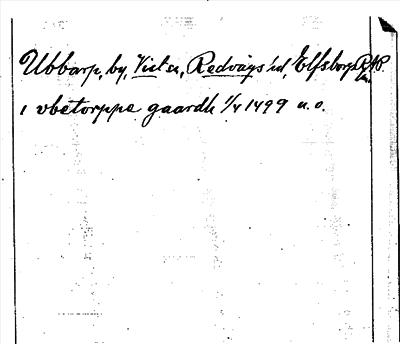 Ubbarp, by, Vist sn, Redvägs hd, Elfsborgs RAP.
i vbetorppe gaardh 1/4 1499 n.o.